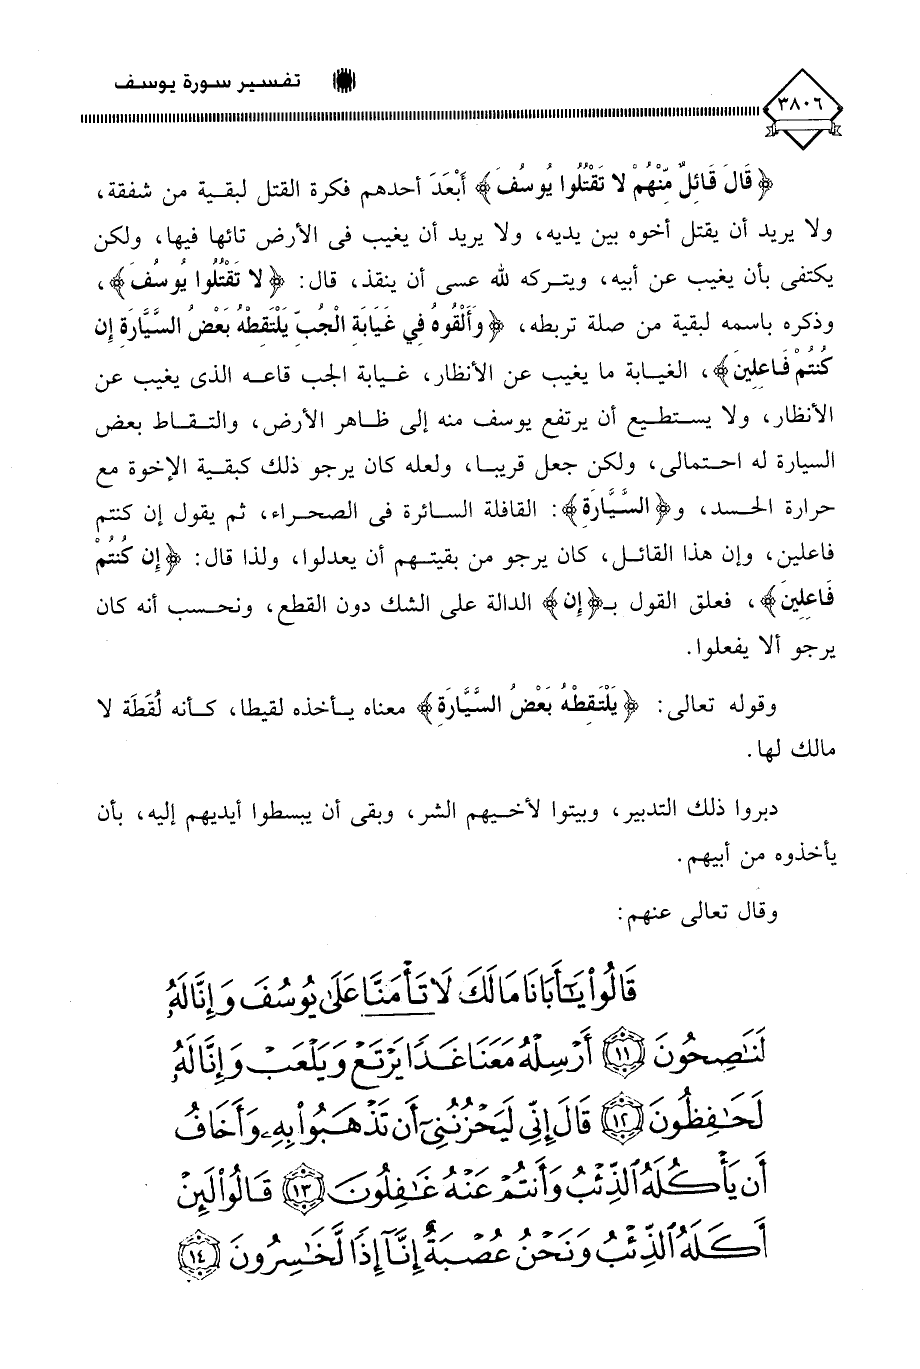 تفسير سورة يوسف
٣٨٠٦
﴿قَالَ قَائِلٌ مِّنْهُمْ لا تَقْتُلُوا يُوسُفَ﴾ أَبْعَدَ أحدهم فكرة القتل لبقية من شفقة،
ولا يريد أن يقتل أخوه بين يديه، ولا يريد أن يغيب فى الأرض تائها فيها، ولكن
يكتفى بأن يغيب عن أبيه، ويتركه لله عسى أن ينقذ، قال: ﴿لا تَقْتُلُوا يُوسُفَ﴾،
وذكره باسمه لبقية من صلة تربطه، ﴿وَأَلْقُوهُ فِي غَيَابَةِ الْجُبِّ يَلْتَقِطْهُ بَعْضُ السَّيَّارَةِ إِن
كُنتُمْ فَاعِلِينَ﴾، الغيابة ما يغيب عن الأنظار، غيابة الجب قاعه الذى يغيب عن
الأنظار، ولا يستطيع أن يرتفع يوسف منه إلى ظاهر الأرض، والتقاط بعض
السيارة له احتمالى، ولكن جعل قريبا، ولعله كان يرجو ذلك كبقية الإخوة مع
حرارة الحسد، و﴿السَّيَّارَةِ﴾: القافلة السائرة فى الصحراء، ثم يقول إن كنتم
فاعلين، وإن هذا القائل، كان يرجو من بقيتهم أن يعدلوا، ولذا قال: ﴿إِن كُنتُمْ
فَاعِلِينَ﴾، فعلق القول بـ﴿إِن﴾ الدالة على الشك دون القطع، ونحسب أنه كان
يرجو ألا يفعلوا.
وقوله تعالى: ﴿يَلْتَقِطْهُ بَعْضُ السَّيَّارَةِ﴾ معناه يأخذه لقيطا، كأنه لُقَطَة لا
مالك لها.
دبروا ذلك التدبير، وبيتوا لأخيهم الشر، وبقى أن يبسطوا أيديهم إليه، بأن
يأخذوه من أبيهم.
وقال تعالى عنهم:
قَالُوا۟ يَٰٓأَبَانَا مَالَكَ لَا تَأْمَ۫نَّا عَلَىٰ يُوسُفَ وَإِنَّا لَهُۥ
لَنَٰصِحُونَ ۝١١ أَرْسِلْهُ مَعَنَا غَدًا يَرْتَعْ وَيَلْعَبْ وَإِنَّا لَهُۥ
لَحَٰفِظُونَ ۝١٢ قَالَ إِنِّى لَيَحْزُنُنِىٓ أَن تَذْهَبُوا۟ بِهِۦ وَأَخَافُ
أَن يَأْكُلَهُ ٱلذِّئْبُ وَأَنتُمْ عَنْهُ غَٰفِلُونَ ۝١٣ قَالُوا۟ لَئِنْ
أَكَلَهُ ٱلذِّئْبُ وَنَحْنُ عُصْبَةٌ إِنَّآ إِذًا لَّخَٰسِرُونَ ۝١٤